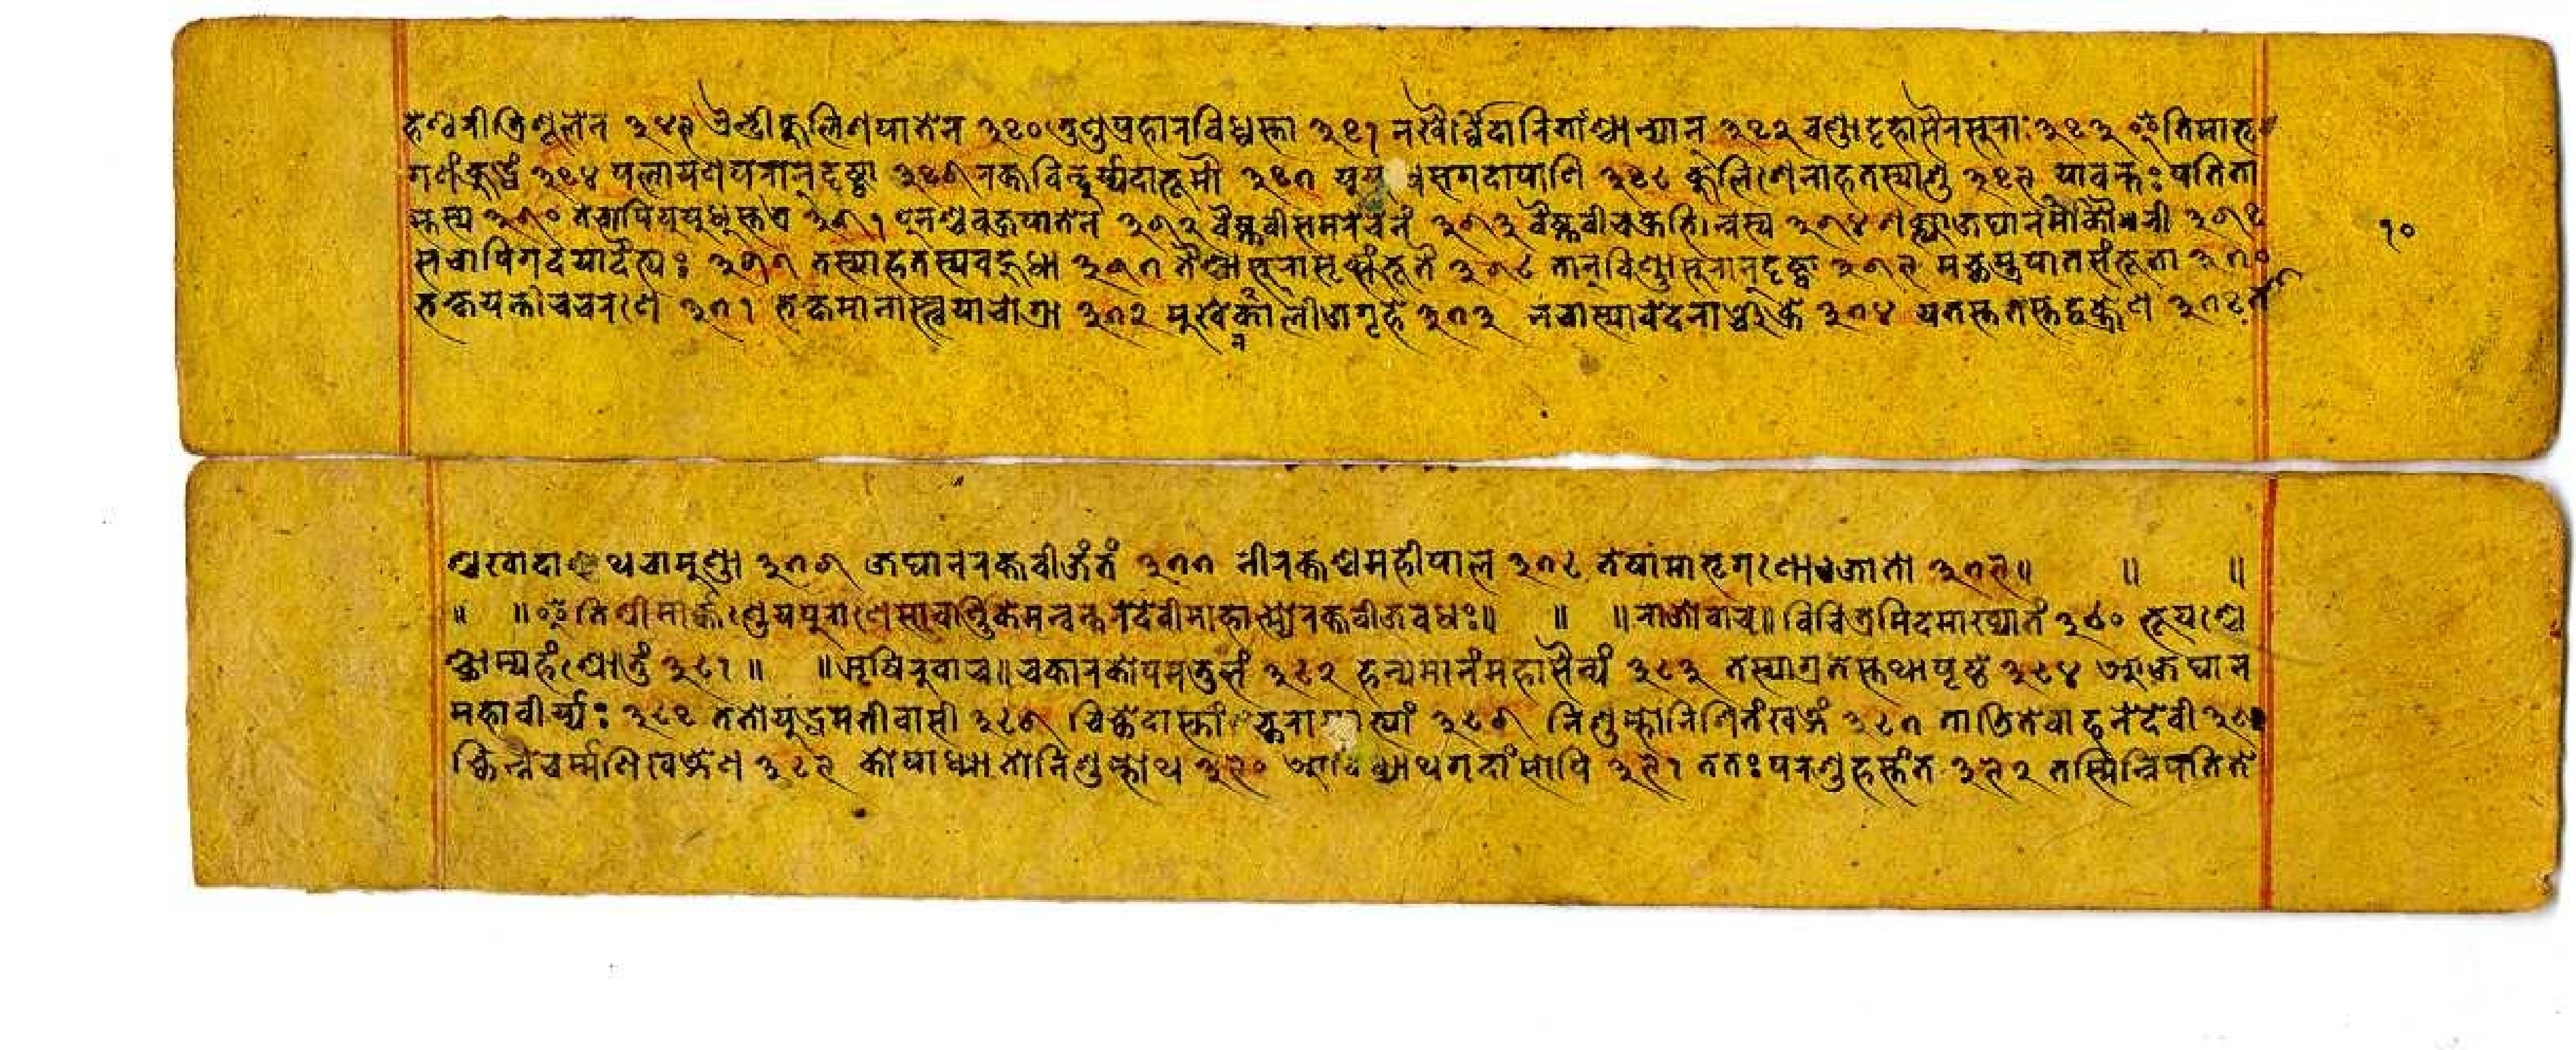 हेश्वरीत्रिशूलेन ३४९ ऐन्द्रीकुलिशपातेन ३५० तुण्डप्रहारविध्वस्ता ३५१ नखैर्व्विदारितांश्चान्यान् ३५२ चण्डाट्टहासैरसुराः ३५३ इतिमातृ
गणंक्रुद्धं ३५४ पलायणपरान्दृष्ट्वा ३५५ रक्तविन्दुर्य्यदाभूमौ ३५७ युयुधेसगदापाणि ३५८ कुलिशेनाहतस्याशु ३५९ यावन्तः पतिता
स्तस्य ३६० तेचापियुयुधुस्तत्र ३६१ पुनश्चवज्रपातेन ३६२ वैष्णवीसमरेचैनं ३६३ वैष्णवीचक्रभिन्नस्य ३६४ शक्त्याजघानकौमारी ३६५
सचापिगदयादैत्यः ३६६ तस्याहतस्यबहुधा ३६७ तैश्चासुरासृक्संभूतै ३६८ तान्विषण्णासुरान्दृष्ट्वा ३६९ मच्छस्त्रपातसंभूता ३७०
भक्षयन्तीचररणे ३७१ भक्ष्यमानास्त्वयाचोग्रा ३७२ मुखेनकालीजगृहे ३७३ नचास्यावेदनाञ्चक्रे ३७४ यतस्ततस्तद्वक्त्रेण ३७५ तां
१०
श्चखादाथचामुण्डा ३७६ जघानरक्तबीजंतं ३७७ नीरक्तश्चमहीपाल ३७८ तेषांमातृगणोजातो ३७९॥ ॥ ॥
॥ ॥इतिश्रीमार्कण्डेयपुराणेसावर्णिकेमन्वन्तरेदेवीमाहात्म्येरक्तबीजवधः॥ ॥ ॥राजोवाच॥ विचित्रमिदमाख्यातं ३८० भूयश्चे
च्छाम्यहंश्रोतुं ३८१ ॥ ॥ऋषिरुवाच॥ चकारकोपमतुलं ३८२ हन्यमानंमहासैन्यं ३८३ तस्याग्रतस्तथापृष्ठे ३८४ आजघान
महावीर्य्यः ३८५ ततोयुद्धमतीवासी ३८६ चिच्छेदास्तांच्छरा स्त्यां ३८६ निशुम्भोनिशितंखड्गं ३८७ ताडितेवाहनेदेवी ३८८
छिन्नेचर्म्मणिखड्गेण ३८९ कोपाध्मातोनिशुम्भोथ ३९० आविध्याथगदांसोपि ३९१ ततःपरशुहस्तंत ३९२ तस्मिन्निपतिते